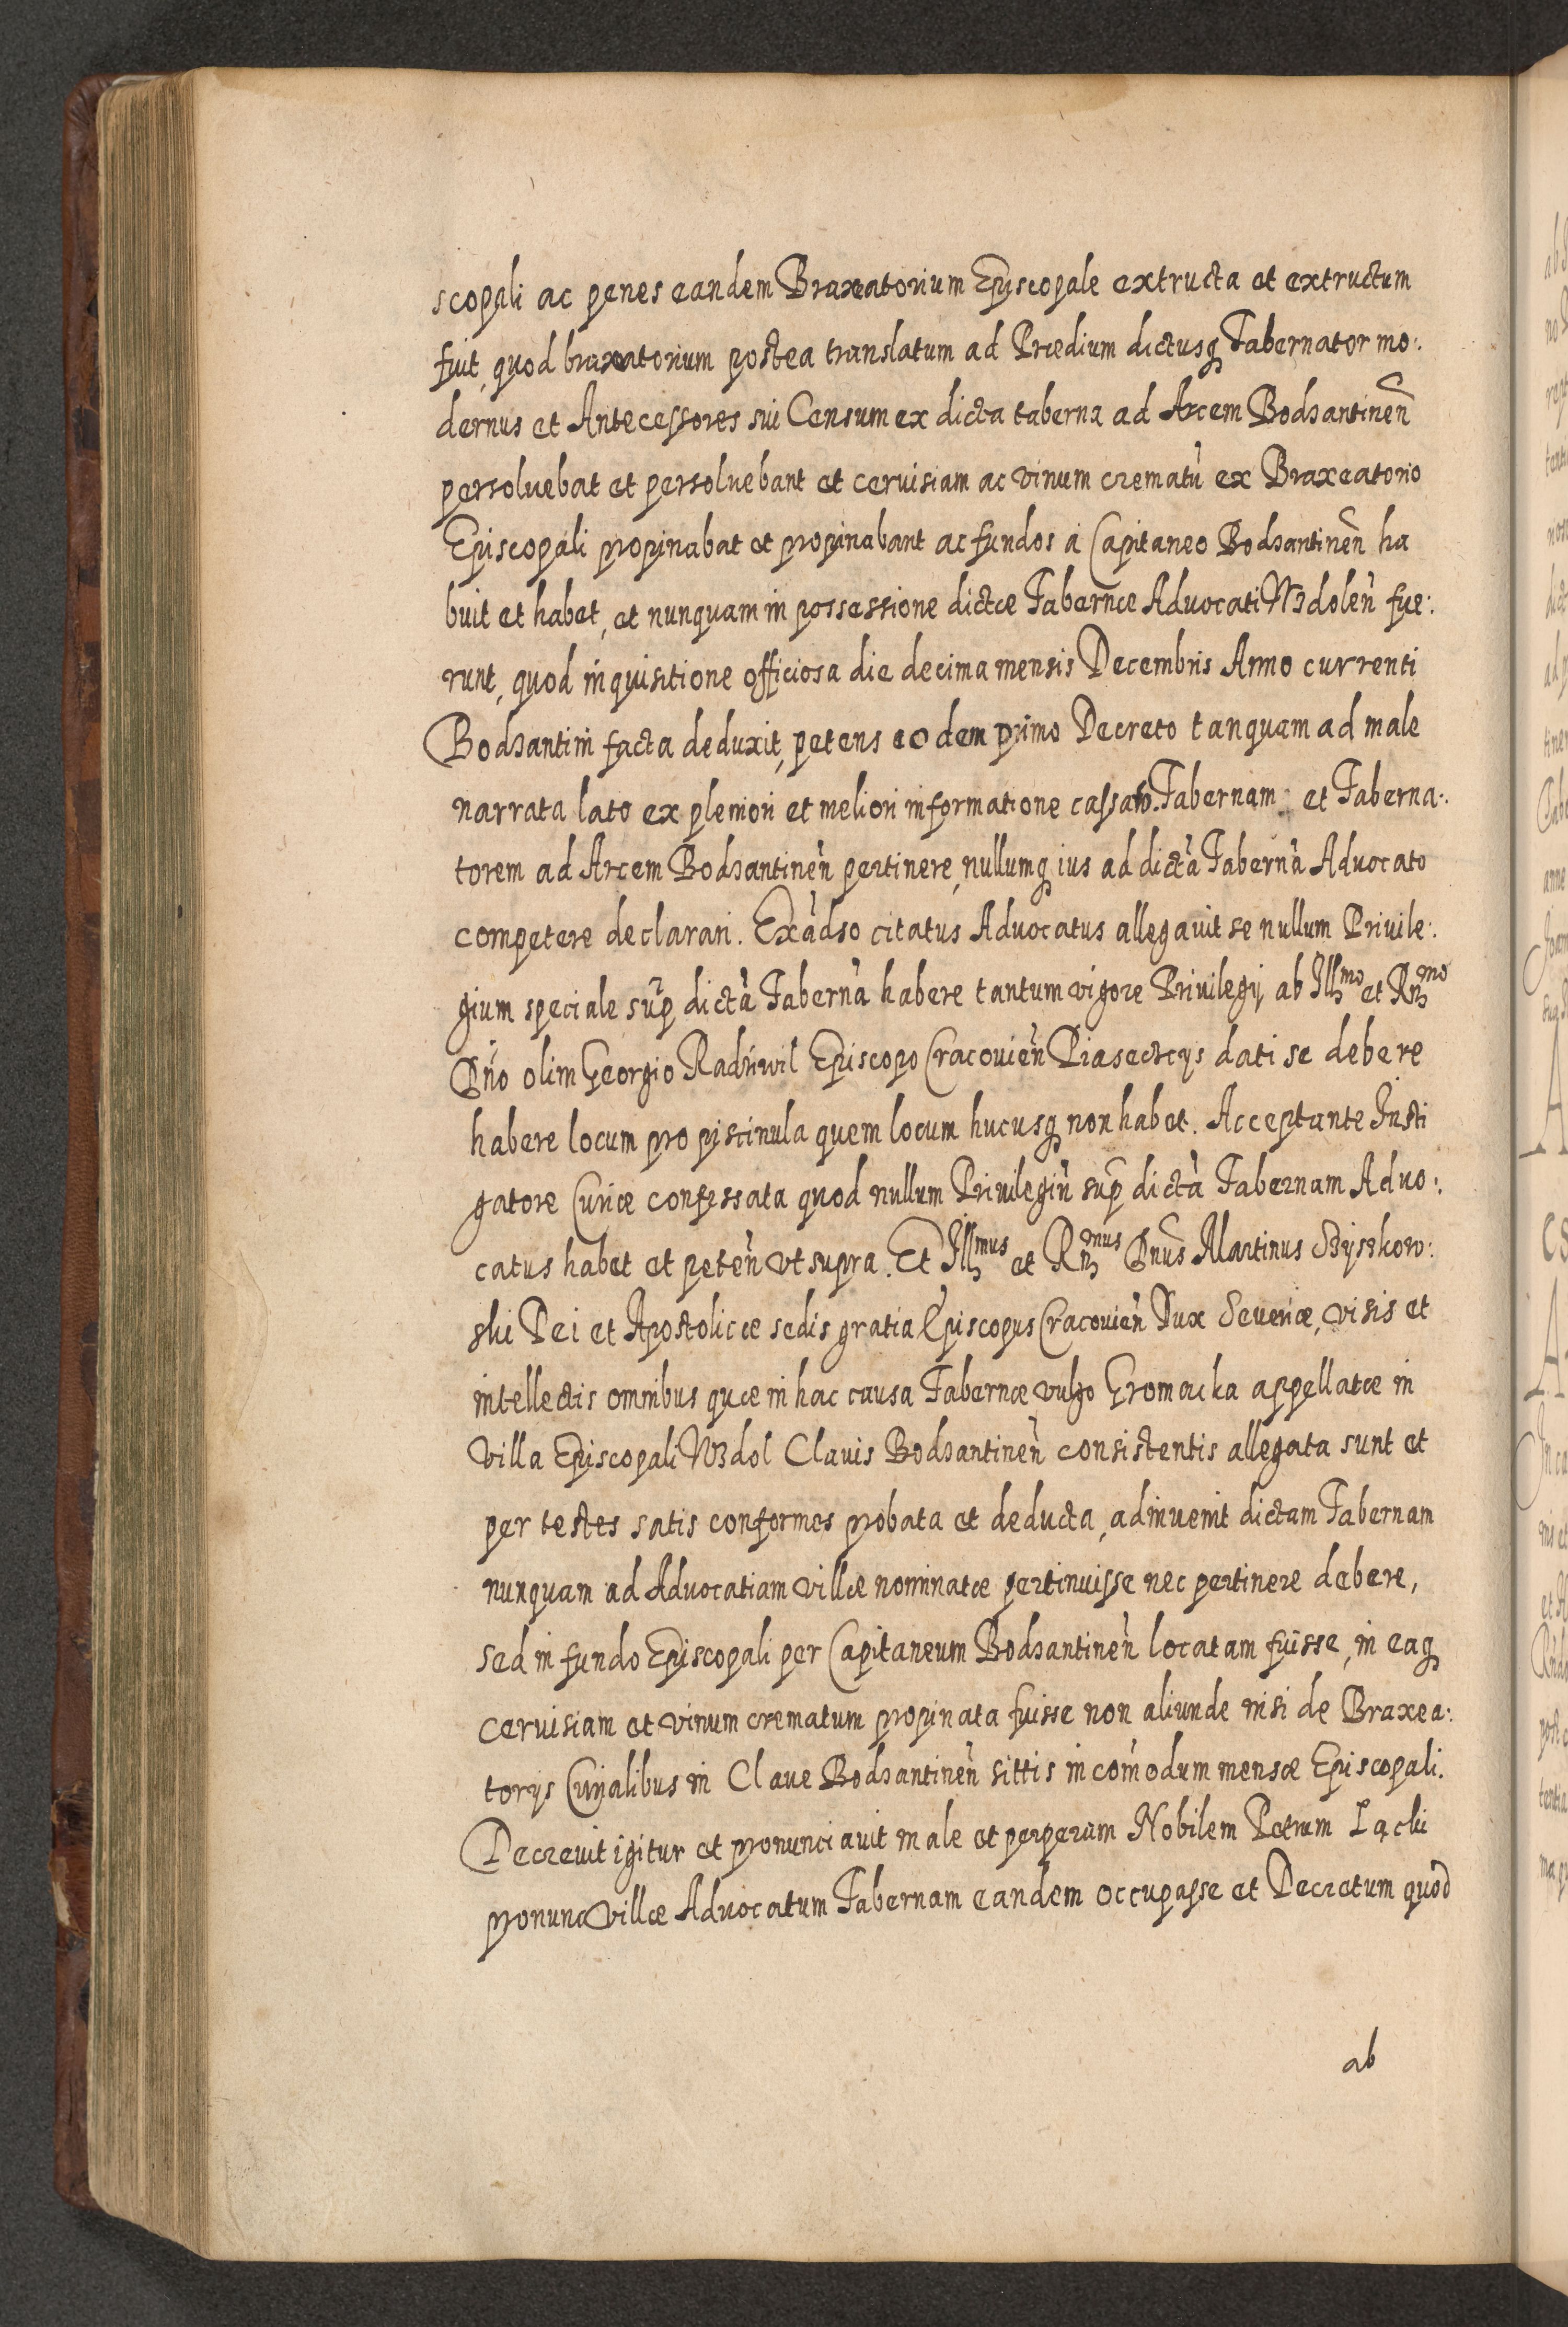 scopali ac penes eandem Braxeatorium Episcopale extructa et extructum
fuit, quod braxeatorium postea translatum ad Prædium dictusq Tabernator mo:
dernus et Antecessores sui Censum ex dicta taberna ad Arcem Bodzantineñ
persoluebat et persoluebant et ceruisiam ac vinum crematũ ex Braxeatorio
Episcopali propinabat et propinabant ac fundos à Capitaneo Bodzantineñ ha
buit et habet, et nunquam in possessione dictæ Tabernæ Aduocati Wzdoleñ fue:
runt, quod inquisitione officiosa die decima mensis Decembris Anno currenti
Bodzantini facta deduxit, petens eodem primo Decreto tanquam ad male
narrata lato ex pleniori et meliori informatione cassato. Tabernam et Taberna:
torem ad Arcem Bodzantineñ pertinere, nullumq ius ad dictã Tabernã Aduocato
competere declarari. Exãdso citatus Aduocatus allegauit se nullum Priuile:
gium speciale sup dictã Tabernã habere tantum vigore Priuilegij ab Illmo et Rñmo
Dño olim Georgio Radziwil Episcopo Cracouieñ Piaseckys dati se debere
habere locum pro piscinula quem locum hucusq non habet. Acceptante Insti
gatore Curiæ confessata quod nullum Priuilegiũ sup dictã Tabernam Aduo:
catus habet et peteñ vt supra. Et Illmus et Rñmus Dñus Martinus Szyszkow:
ski Dei et Apostolicæ sedis gratia Episcopus Cracouieñ Dux Seueriæ, visis et
intellectis omnibus quæ in hac causa Tabernæ vulgo Gromacka appellatæ in
villa Episcopali Wzdol Clauis Bodzantineñ consistentis allegata sunt et
per testes satis conformes probata et deducta, adinuenit dictam Tabernam
nunquam ad Aduocatiam villæ nominatæ pertinuisse nec pertinere debere,
sed in fundo Episcopali per Capitaneum Bodzantineñ locatam fuisse, in eaq
ceruisiam et vinum crematum propinata fuisse non aliunde nisi de Braxea:
torys Curialibus in Claue Bodzantineñ sittis in com̃odum mensæ Episcopali.
Decreuit igitur et pronunciauit male et perperam Nobilem Petrum Łącki
pronunc villæ Aduocatum Tabernam eandem occupasse et Decretum quod
ab